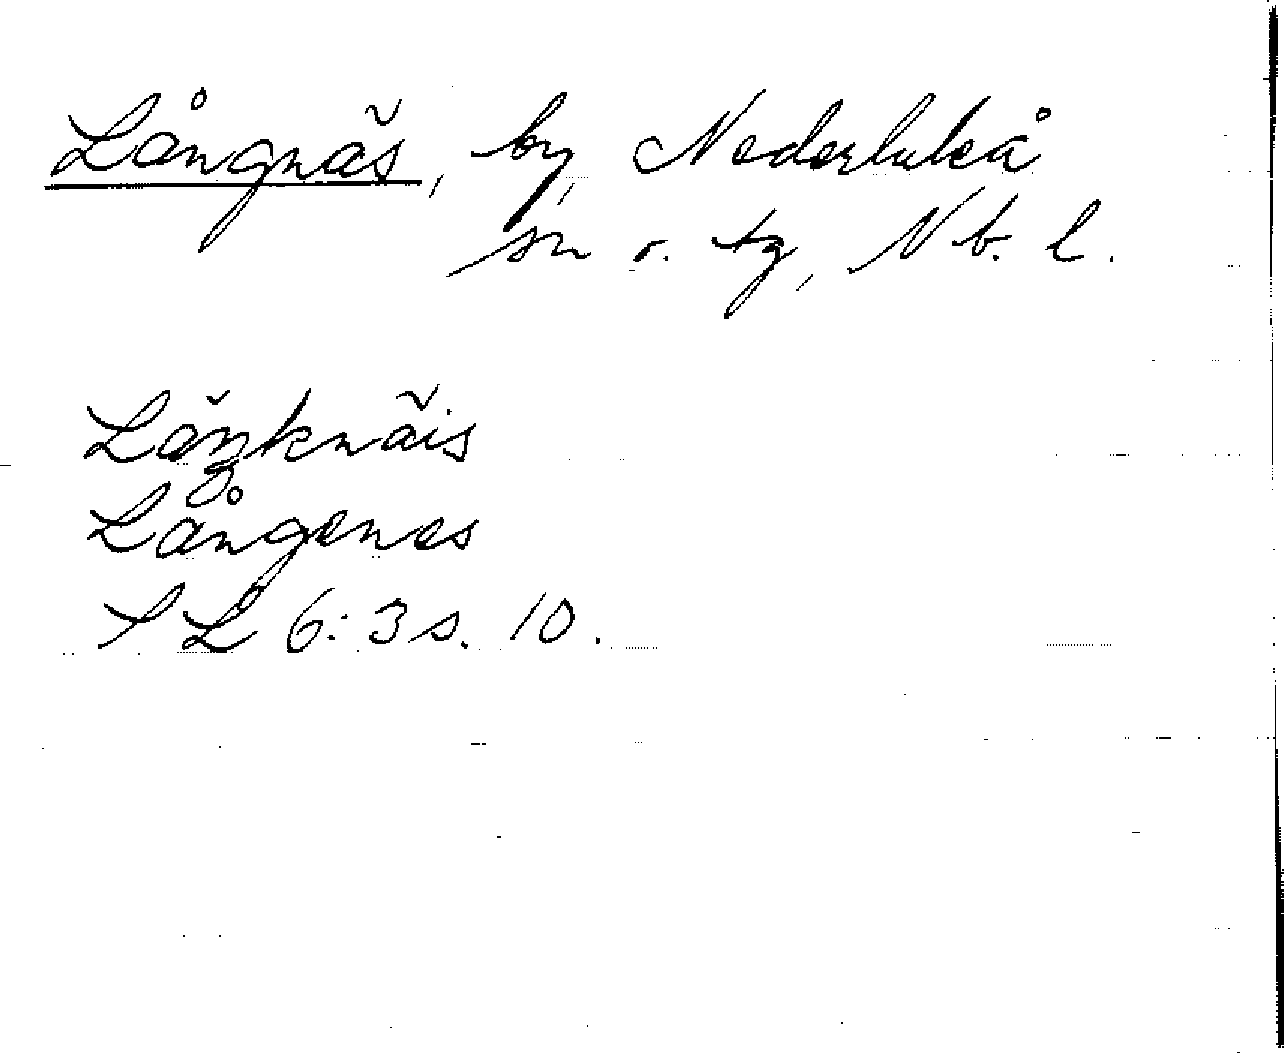 Långnäs, by, Nederluleå
sn o. tg, Nb. l.
Låŋknäis
Långenes
SL 6:3 s. 10.